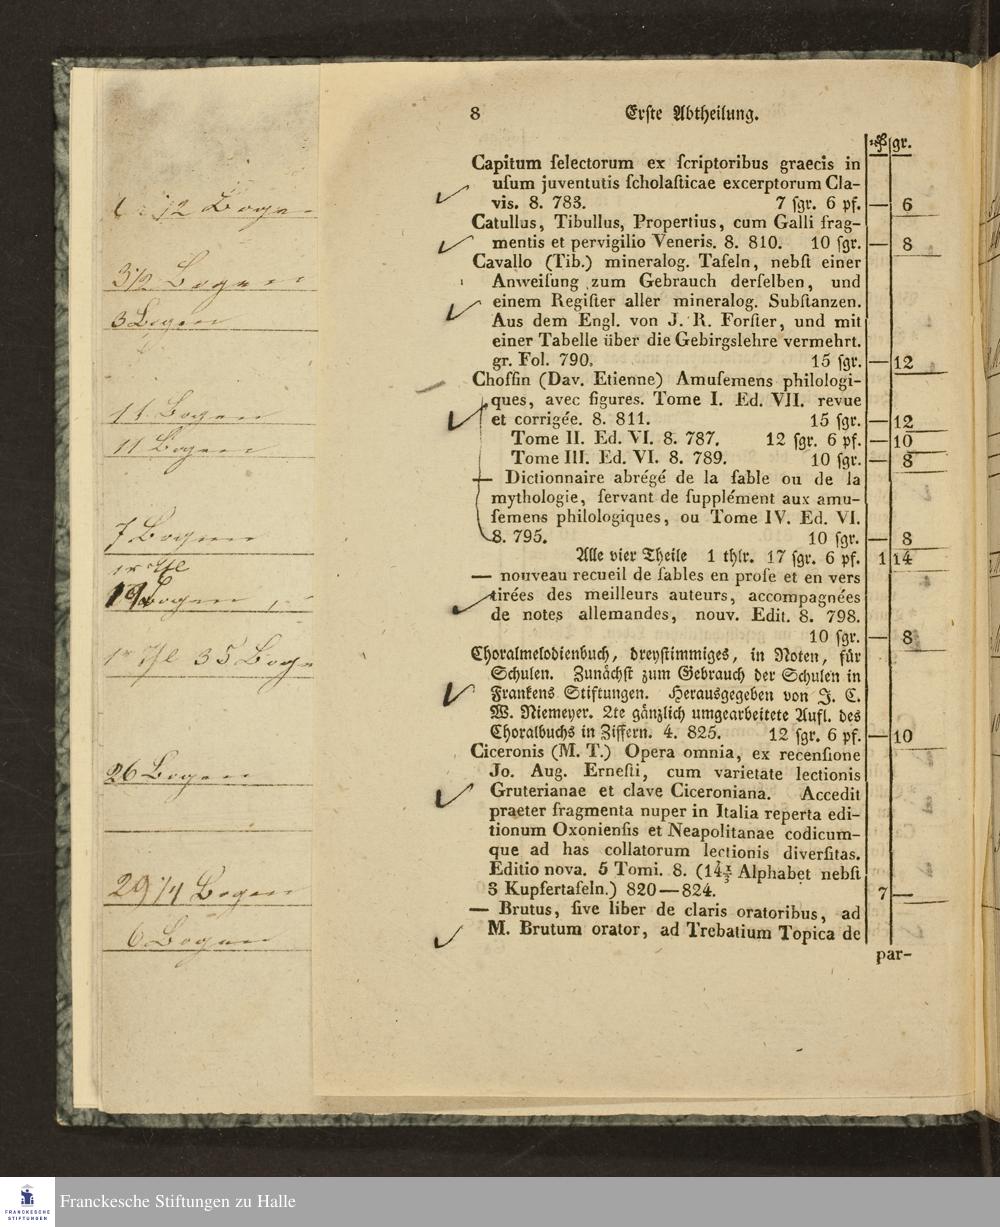 8 Erste Abtheilung.
rß gr.
Capitum ſelectorum ex ſcriptoribus graecis in
uſum juventutis ſcholaſticae excerptorum Cla-
vis. 8. 783. 7 ſgr. 6 pf. — 6
Catullus, Tibullus, Propertius, cum Galli frag-
mentis et pervigilio Veneris. 8. 810. 10 ſgr. — 8
Cavallo (Tib.) mineralog. Tafeln, nebſt einer
Anweiſung zum Gebrauch derſelben, und
einem Regiſter aller mineralog. Subſtanzen.
Aus dem Engl. von J. R. Forſter, und mit
einer Tabelle über die Gebirgslehre vermehrt.
gr. Fol. 790. 15 ſgr. — 12
Choffin (Dav. Etienne) Amuſemens philologi-
ques, avec figures. Tome I. Ed. VII. revue
et corrigée. 8. 811. 15 ſgr. — 12
Tome II. Ed. VI. 8. 787. 12 ſgr. 6 pf. — 10
Tome III. Ed. VI. 8. 789. 10 ſgr. — 8
— Dictionnaire abrégé de la fable ou de la
mythologie, ſervant de ſupplément aux amu-
ſemens philologiques, ou Tome IV. Ed. VI.
8. 795. 10 ſgr. — 8
Alle vier Theile 1 thlr. 17 ſgr. 6 pf. 1 14
— nouveau recueil de fables en proſe et en vers
tirées des meilleurs auteurs, accompagnées
de notes allemandes, nouv. Edit. 8. 798.
10 ſgr. — 8
Choralmelodienbuch, dreyſtimmiges, in Noten, für
Schulen. Zunächſt zum Gebrauch der Schulen in
Frankens Stiftungen. Herausgegeben von J. C.
W. Niemeyer. 2te gänzlich umgearbeitete Aufl. des
Choralbuchs in Ziffern. 4. 825. 12 ſgr. 6 pf. — 10
Ciceronis (M. T.) Opera omnia, ex recenſione
Jo. Aug. Erneſti, cum varietate lectionis
Gruterianae et clave Ciceroniana. Accedit
praeter fragmenta nuper in Italia reperta edi-
tionum Oxonienſis et Neapolitanae codicum-
que ad has collatorum lectionis diverſitas.
Editio nova. 5 Tomi. 8. (14⅓ Alphabet nebſt
3 Kupfertafeln.) 820—824. 7 —
— Brutus, ſive liber de claris oratoribus, ad
M. Brutum orator, ad Trebatium Topica de
par-
1/2 Bogen
3 1/2 Bogen
3 Bogen
11 Bogen
11 Bogen
7 Bogen
19 Bogen
35 Bogn
26 Bogen
29 1/4 Bogen
6 Bogen
FRANCKESCHE
STIFTUNGEN
Franckesche Stiftungen zu Halle